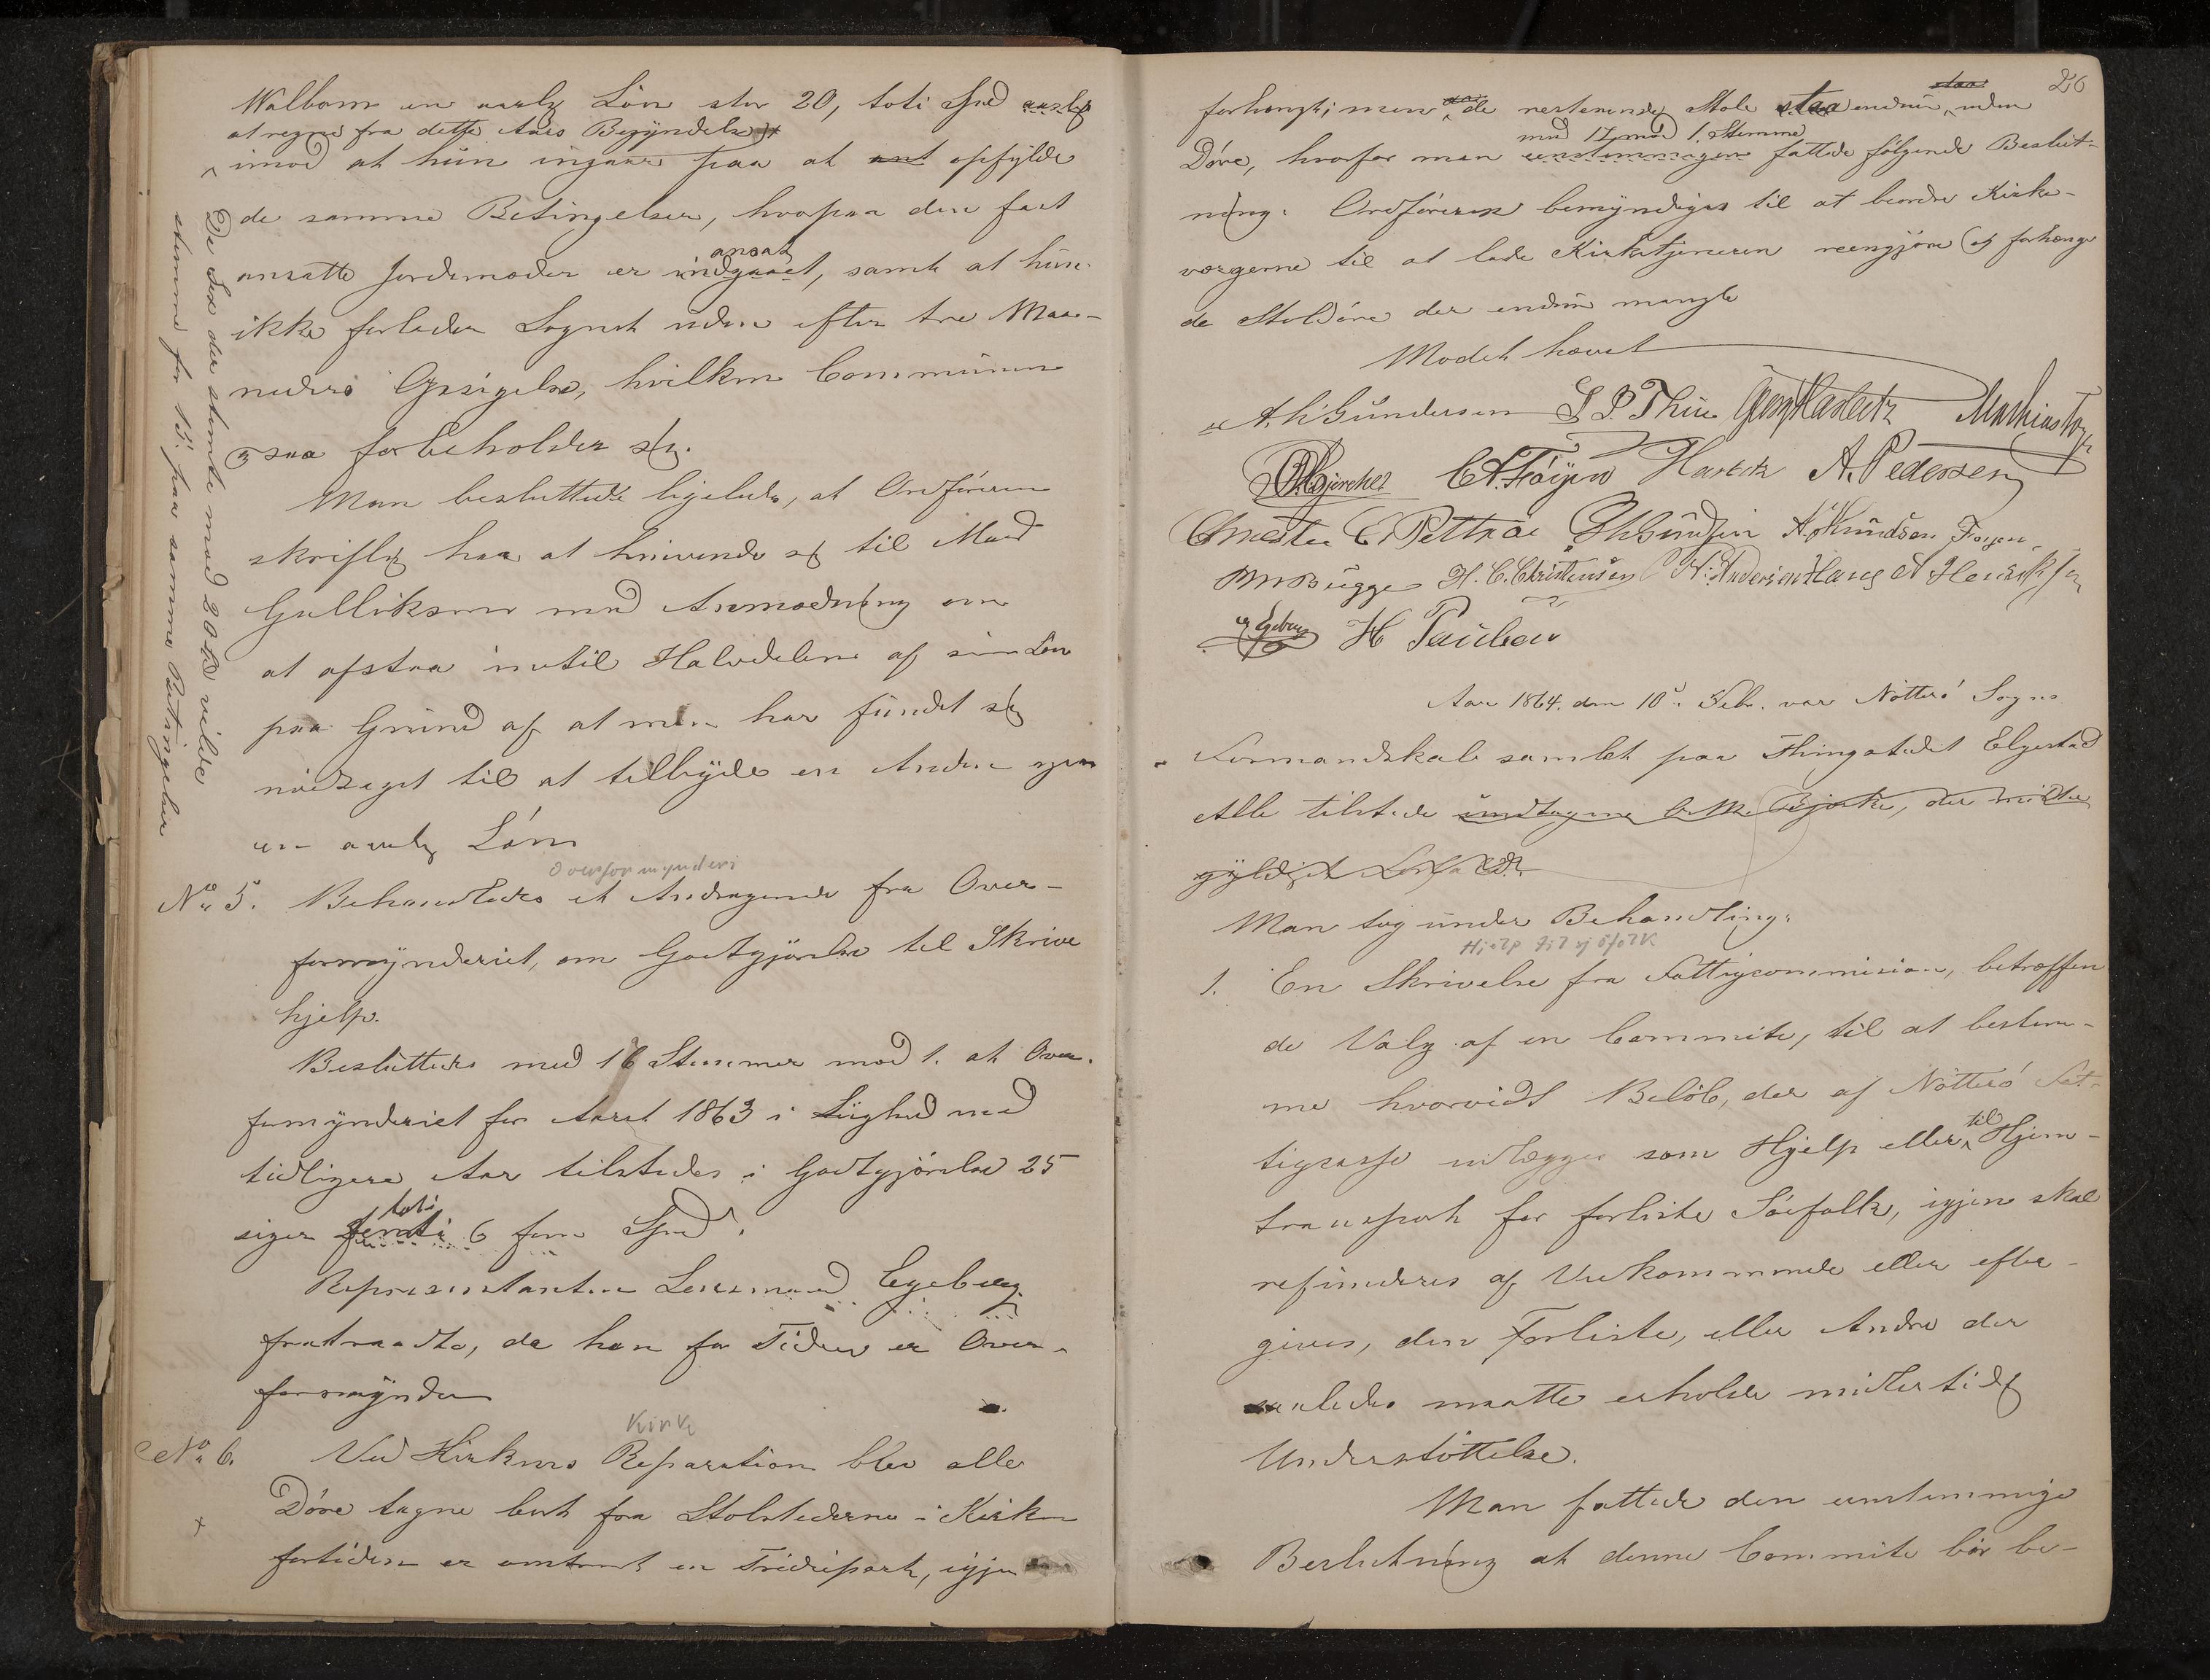 Walbom en aarlig Lön stor 20, toti Spd aarlig
at regne fra dette Aars Begyndelse
imod at hun ingaar paa at ant opfylde
de samme Betingelser, hvorpaa den fast
ansatte Jordemoder er indgaaet, ansat, samt at hun
ikke forlader Sognet uden efter tre Maa-
neders Opsigelse, hvilken Communen
ogsaa forbeholder sig.
De Sex der stemte mod 20 Spd vilde
stemme for 15 paa samme Betingelser
Man besluttede ligeledes, at Ordföreren
skriftlig har at henvende sig til Mad
Gulliksen med Anmodning om
at afstaa indtil Halvdelen af sin Lön
paa Grund af at man har fundet sig
nödsaget til at tilbyde en Anden ogsaa
en aarlig Lön
Overformynderi
No 5. Behandledes et Andragende fra Over-
formynderiet, om Godtgjörelse til Skrive
hjelp.
Besluttedes med 16 Stemmer mod 1. at Over-
formynderiet for Aaret 1863 i Liighed med
tidligere Aar tilstedes i Godtgjörelse 25
siger femti toti 6 fem Spd.
Representanten Lensmand Egeberg
fratraadte, da han for Tiden er Over-
formynder
Kirke
No 6. Ved Kirkens Reparation blev alle
Döre tagne bort fra Stolstederne i Kirken
fortiden er omtrent en Tridiepart, igjen
26
forhængt; men de resterende Stole staa endnu staa uden
med 17 mod 1. Stemme
Döre, hvorfor man eenstemmigen fattede fölgende Beslut-
ning: Ordföreren bemyndiges til at beordre Kirke-
vergerne til at lade Kirketjeneren reengjöre og forhænge
de Stoldöre der endnu mangle
Modet hævet
A. L. Gundersen L P Thue Georg Hasleetz Mathias
Bjerckes C. A. Föyen Hansen A. Pedersen
Christen C. Pettersen Gundersen A. Knudsen Föyen
M M Bugge H. C. Christensen N. Andersen Haug A Henriksen
Egeberg H Paulsen
Aar 1864. den 10d. Febr. var Nötterö Sogns
Formandskab samlet paa Thingstedet Elgestad
Alle tilstede undtagene Bjerke, der meldte
gyldigt Forfald.
Man tog under Behandling:
Hjelp til sjöfolk
1. En Skrivelse fra Fattigcommision, betræffen
de Valg af en Commite, til at bestem-
me hvorvidt Belöb, der af Nötterö Fat-
tigcasse udlægges som Hjelp eller til Hjem-
transport for forliste Söefolk, igjen skal
refunderes af Vedkommende eller efter-
gives, den Forliste, eller Andre der
saaledes maatte erholde midlertidig
Understöttelse.
Man fattede den eenstemmige
Beslutning at denne Commite bör be-